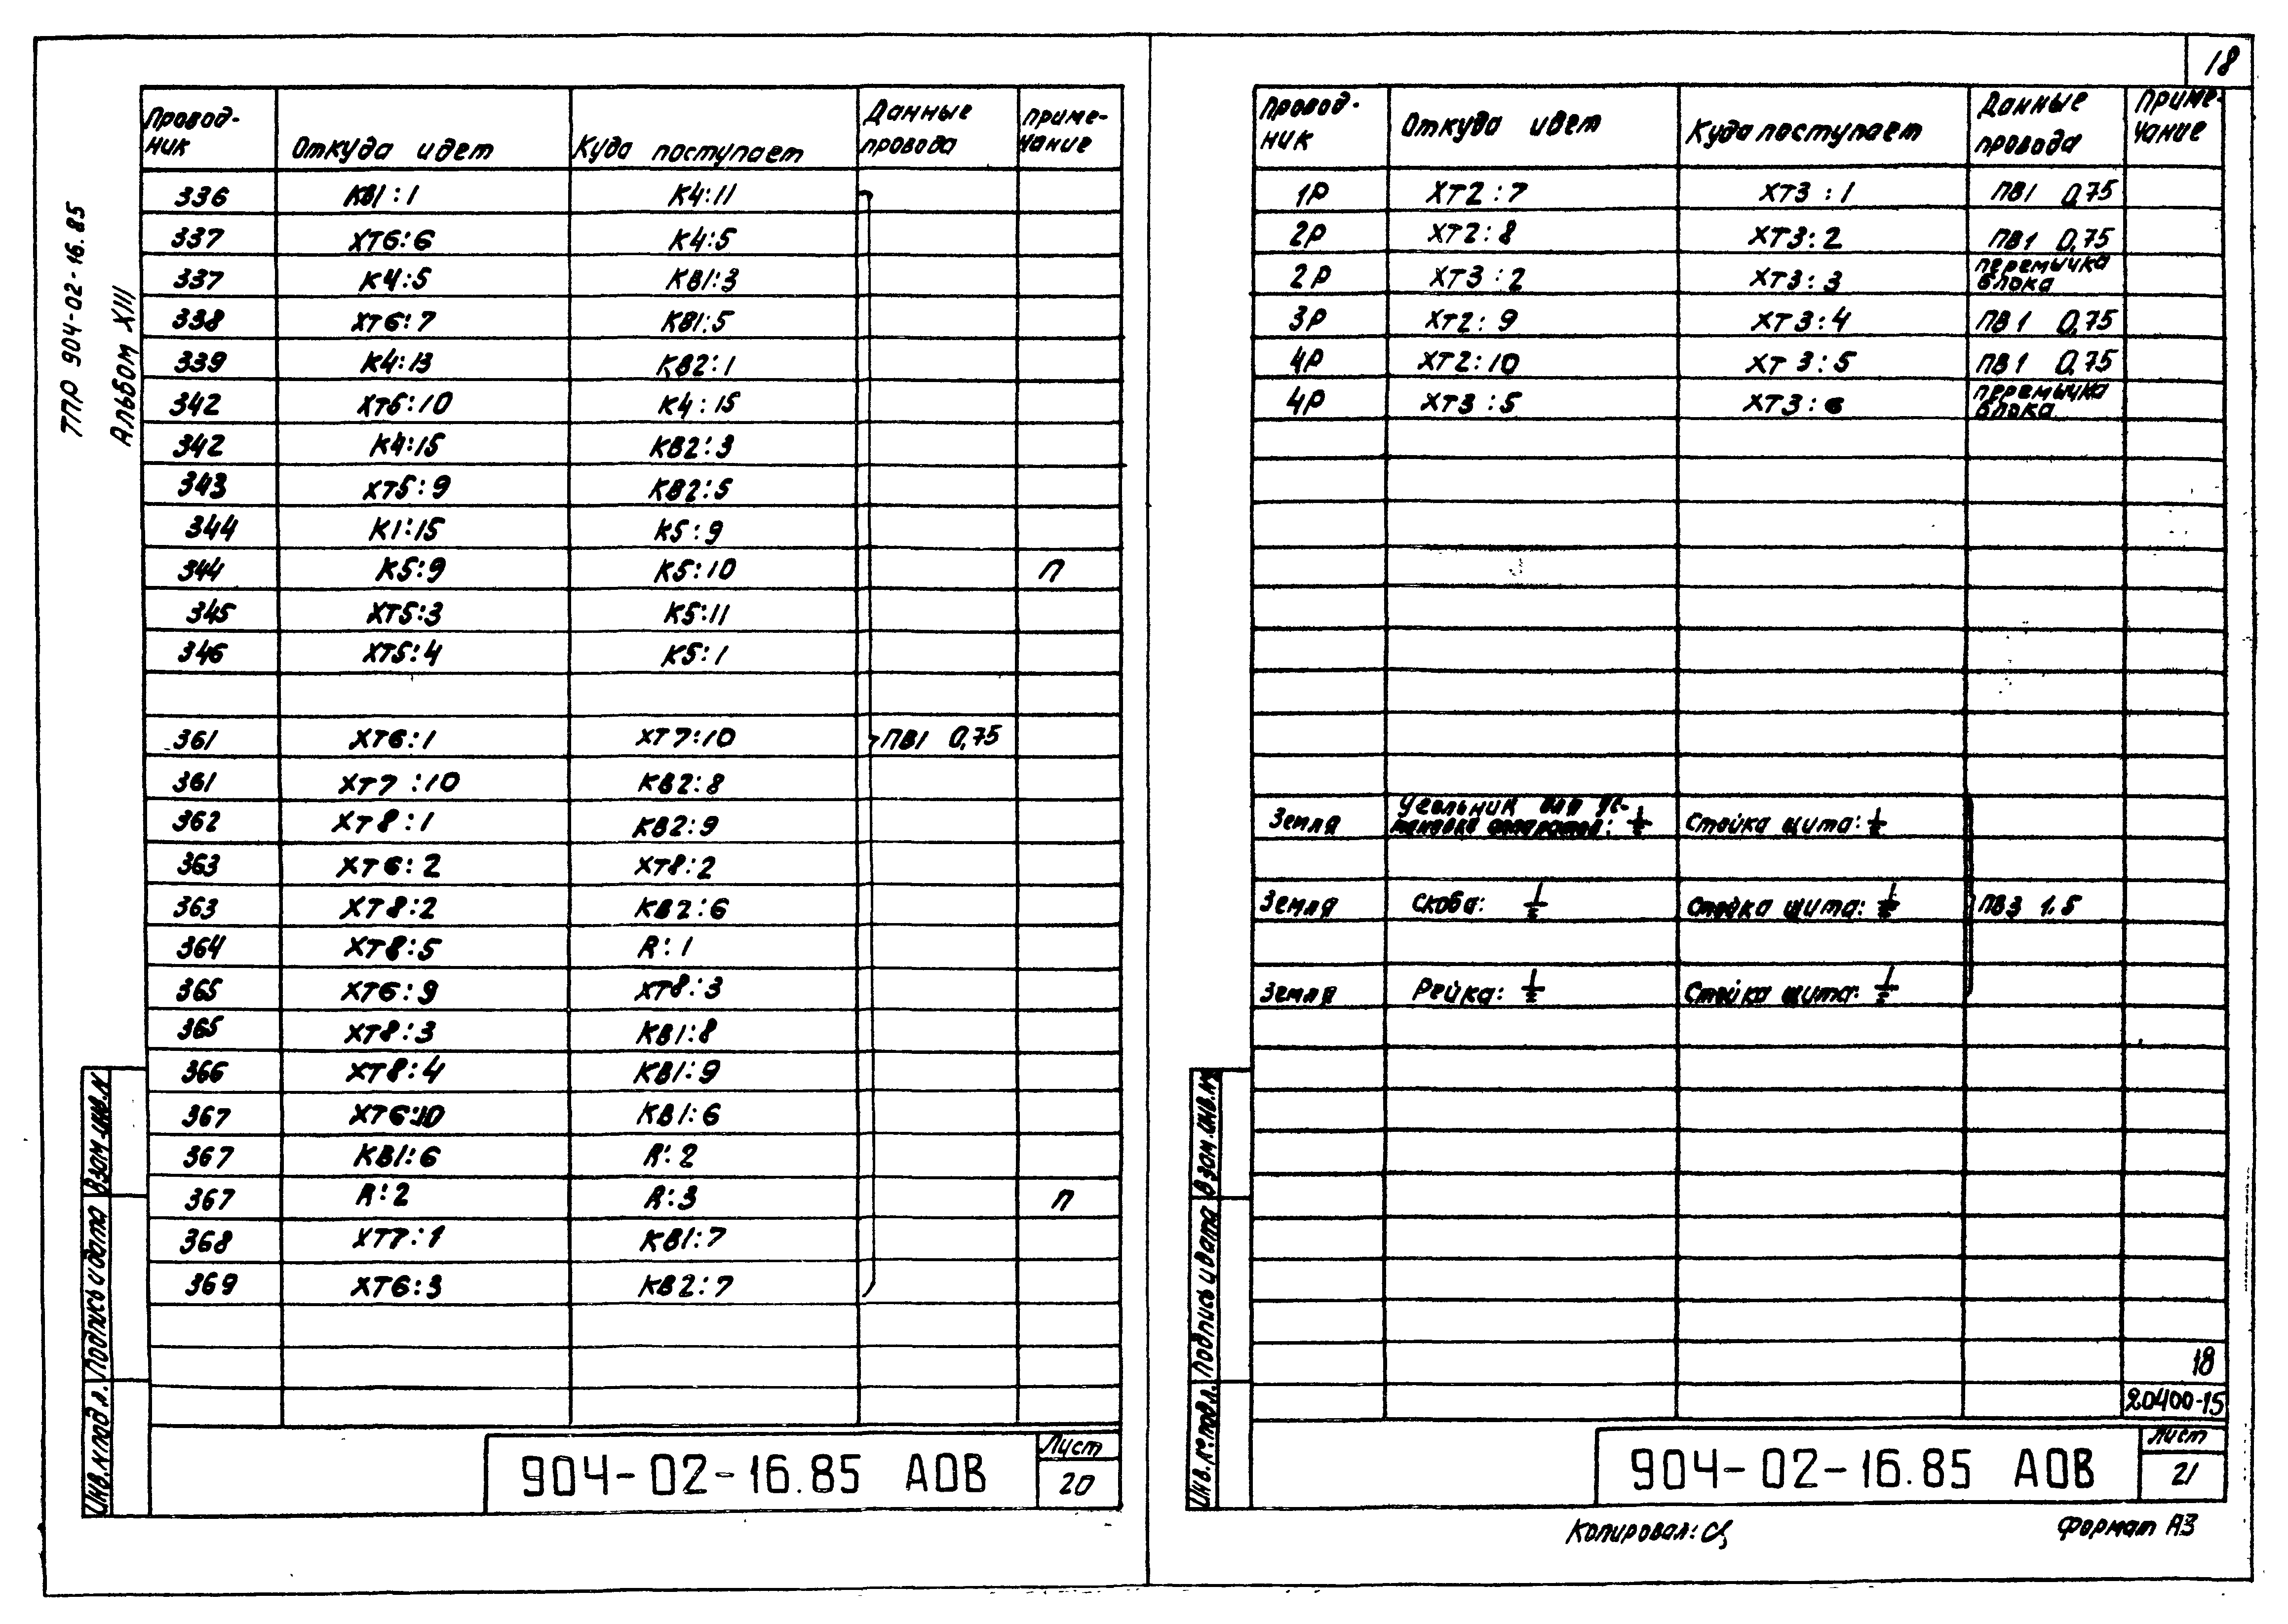 ТПР 904-02-16.85
Альбом XIII
Провод-
ник
Откуда идет
Куда поступает
Данные
провода
Приме-
чание
336 КВ1:1 К4:11
337 ХТ6:6 К4:5
337 К4:5 КВ1:3
338 ХТ6:7 КВ1:5
339 К4:13 КВ2:1
342 ХТ6:10 К4:15
342 К4:15 КВ2:3
343 ХТ5:9 КВ2:5
344 К1:15 К5:9
344 К5:9 К5:10 П
345 ХТ5:3 К5:11
346 ХТ5:4 К5:1
361 ХТ6:1 ХТ7:10 ПВ1 0,75
361 ХТ7:10 КВ2:8
362 ХТ8:1 КВ2:9
363 ХТ6:2 ХТ8:2
363 ХТ8:2 КВ2:6
364 ХТ8:5 R:1
365 ХТ6:9 ХТ8:3
365 ХТ8:3 КВ1:8
366 ХТ8:4 КВ1:9
367 ХТ6:10 КВ1:6
367 КВ1:6 R:2
367 R:2 R:3 П
368 ХТ7:1 КВ1:7
369 ХТ6:3 КВ2:7
Взам.инв.N
Подпись и дата
Инв.Nподл.
904-02-16.85 АОВ
Лист
20
18
Провод-
ник
Откуда идет
Куда поступает
Данные
провода
Приме-
чание
1Р ХТ2:7 ХТ3:1 ПВ1 0,75
2Р ХТ2:8 ХТ3:2 ПВ1 0,75
2Р ХТ3:2 ХТ3:3 перемычка
блока
3Р ХТ2:9 ХТ3:4 ПВ1 0,75
4Р ХТ2:10 ХТ3:5 ПВ1 0,75
4Р ХТ3:5 ХТ3:6 перемычка
блока
Земля Угольник для ус-
тановки аппаратов: ⏚ Стойка щита: ⏚
Земля Скоба: ⏚ Стойка щита: ⏚ ПВ3 1.5
Земля Рейка: ⏚ Стойка щита: ⏚
18
20400-15
Взам.инв.N
Подпись и дата
Инв.N°подл.
904-02-16.85 АОВ
Лист
21
Копировал:
Формат А3